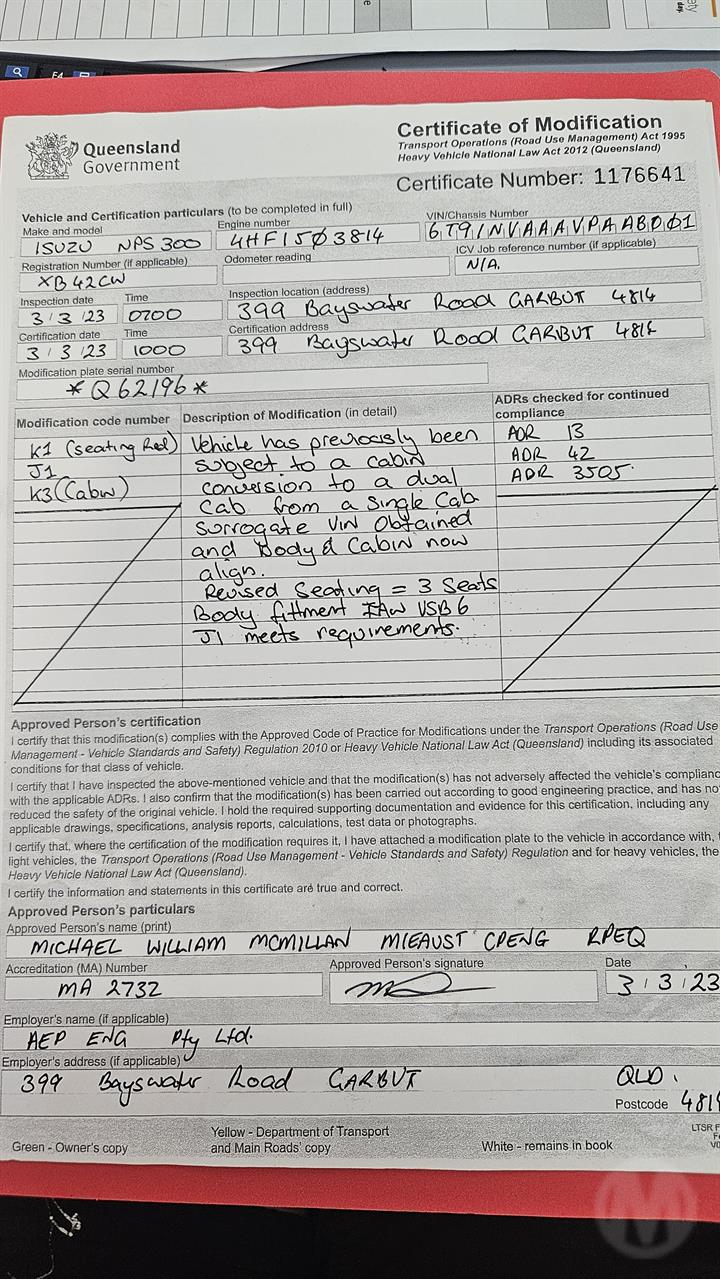 F4
Queensland
Government
Certificate of Modification
Transport Operations (Road Use Management) Act 1995
Heavy Vehicle National Law Act 2012 (Queensland)
Certificate Number: 1176641
Vehicle and Certification particulars (to be completed in full)
Make and model
ISUZU NPS 300
Engine number
4HF1503814
VIN/Chassis Number
6T91NVAAAVPAABD01
Registration Number (if applicable)
XB42CW
Odometer reading
ICV Job reference number (if applicable)
N/A.
Inspection date
3/3/23
Time
0700
Inspection location (address)
399 Bayswater Road GARBUT 4814
Certification date
3/3/23
Time
1000
Certification address
399 Bayswater Road GARBUT 4814
Modification plate serial number
*Q62196*
Modification code number
Description of Modification (in detail)
ADRs checked for continued
compliance
K1 (seating Red)
J1
K3 (Cabin)
Vehicle has previously been
subject to a cabin
conversion to a dual
cab from a single Cab
Surrogate VIN Obtained
and Body & Cabin now
align.
Revised Seating = 3 Seats
Body fittment IAW VSB6
J1 meets requirements.
ADR 13
ADR 42
ADR 3505.
Approved Person's certification
I certify that this modification(s) complies with the Approved Code of Practice for Modifications under the Transport Operations (Road Use
Management - Vehicle Standards and Safety) Regulation 2010 or Heavy Vehicle National Law Act (Queensland) including its associated
conditions for that class of vehicle.
I certify that I have inspected the above-mentioned vehicle and that the modification(s) has not adversely affected the vehicle's complianc
with the applicable ADRs. I also confirm that the modification(s) has been carried out according to good engineering practice, and has no
reduced the safety of the original vehicle. I hold the required supporting documentation and evidence for this certification, including any
applicable drawings, specifications, analysis reports, calculations, test data or photographs.
I certify that, where the certification of the modification requires it, I have attached a modification plate to the vehicle in accordance with,
light vehicles, the Transport Operations (Road Use Management - Vehicle Standards and Safety) Regulation and for heavy vehicles, the
Heavy Vehicle National Law Act (Queensland).
I certify the information and statements in this certificate are true and correct.
Approved Person's particulars
Approved Person's name (print)
MICHAEL WILLIAM MCMILLAN MIEAUST CPENG RPEQ
Accreditation (MA) Number
MA 2732
Approved Person's signature
Date
3/3/23
Employer's name (if applicable)
AEP ENG Pty Ltd.
Employer's address (if applicable)
399 Bayswater Road GARBUT QLD.
Postcode 4814
Green - Owner's copy
Yellow - Department of Transport
and Main Roads' copy
White - remains in book
LTSR F
M